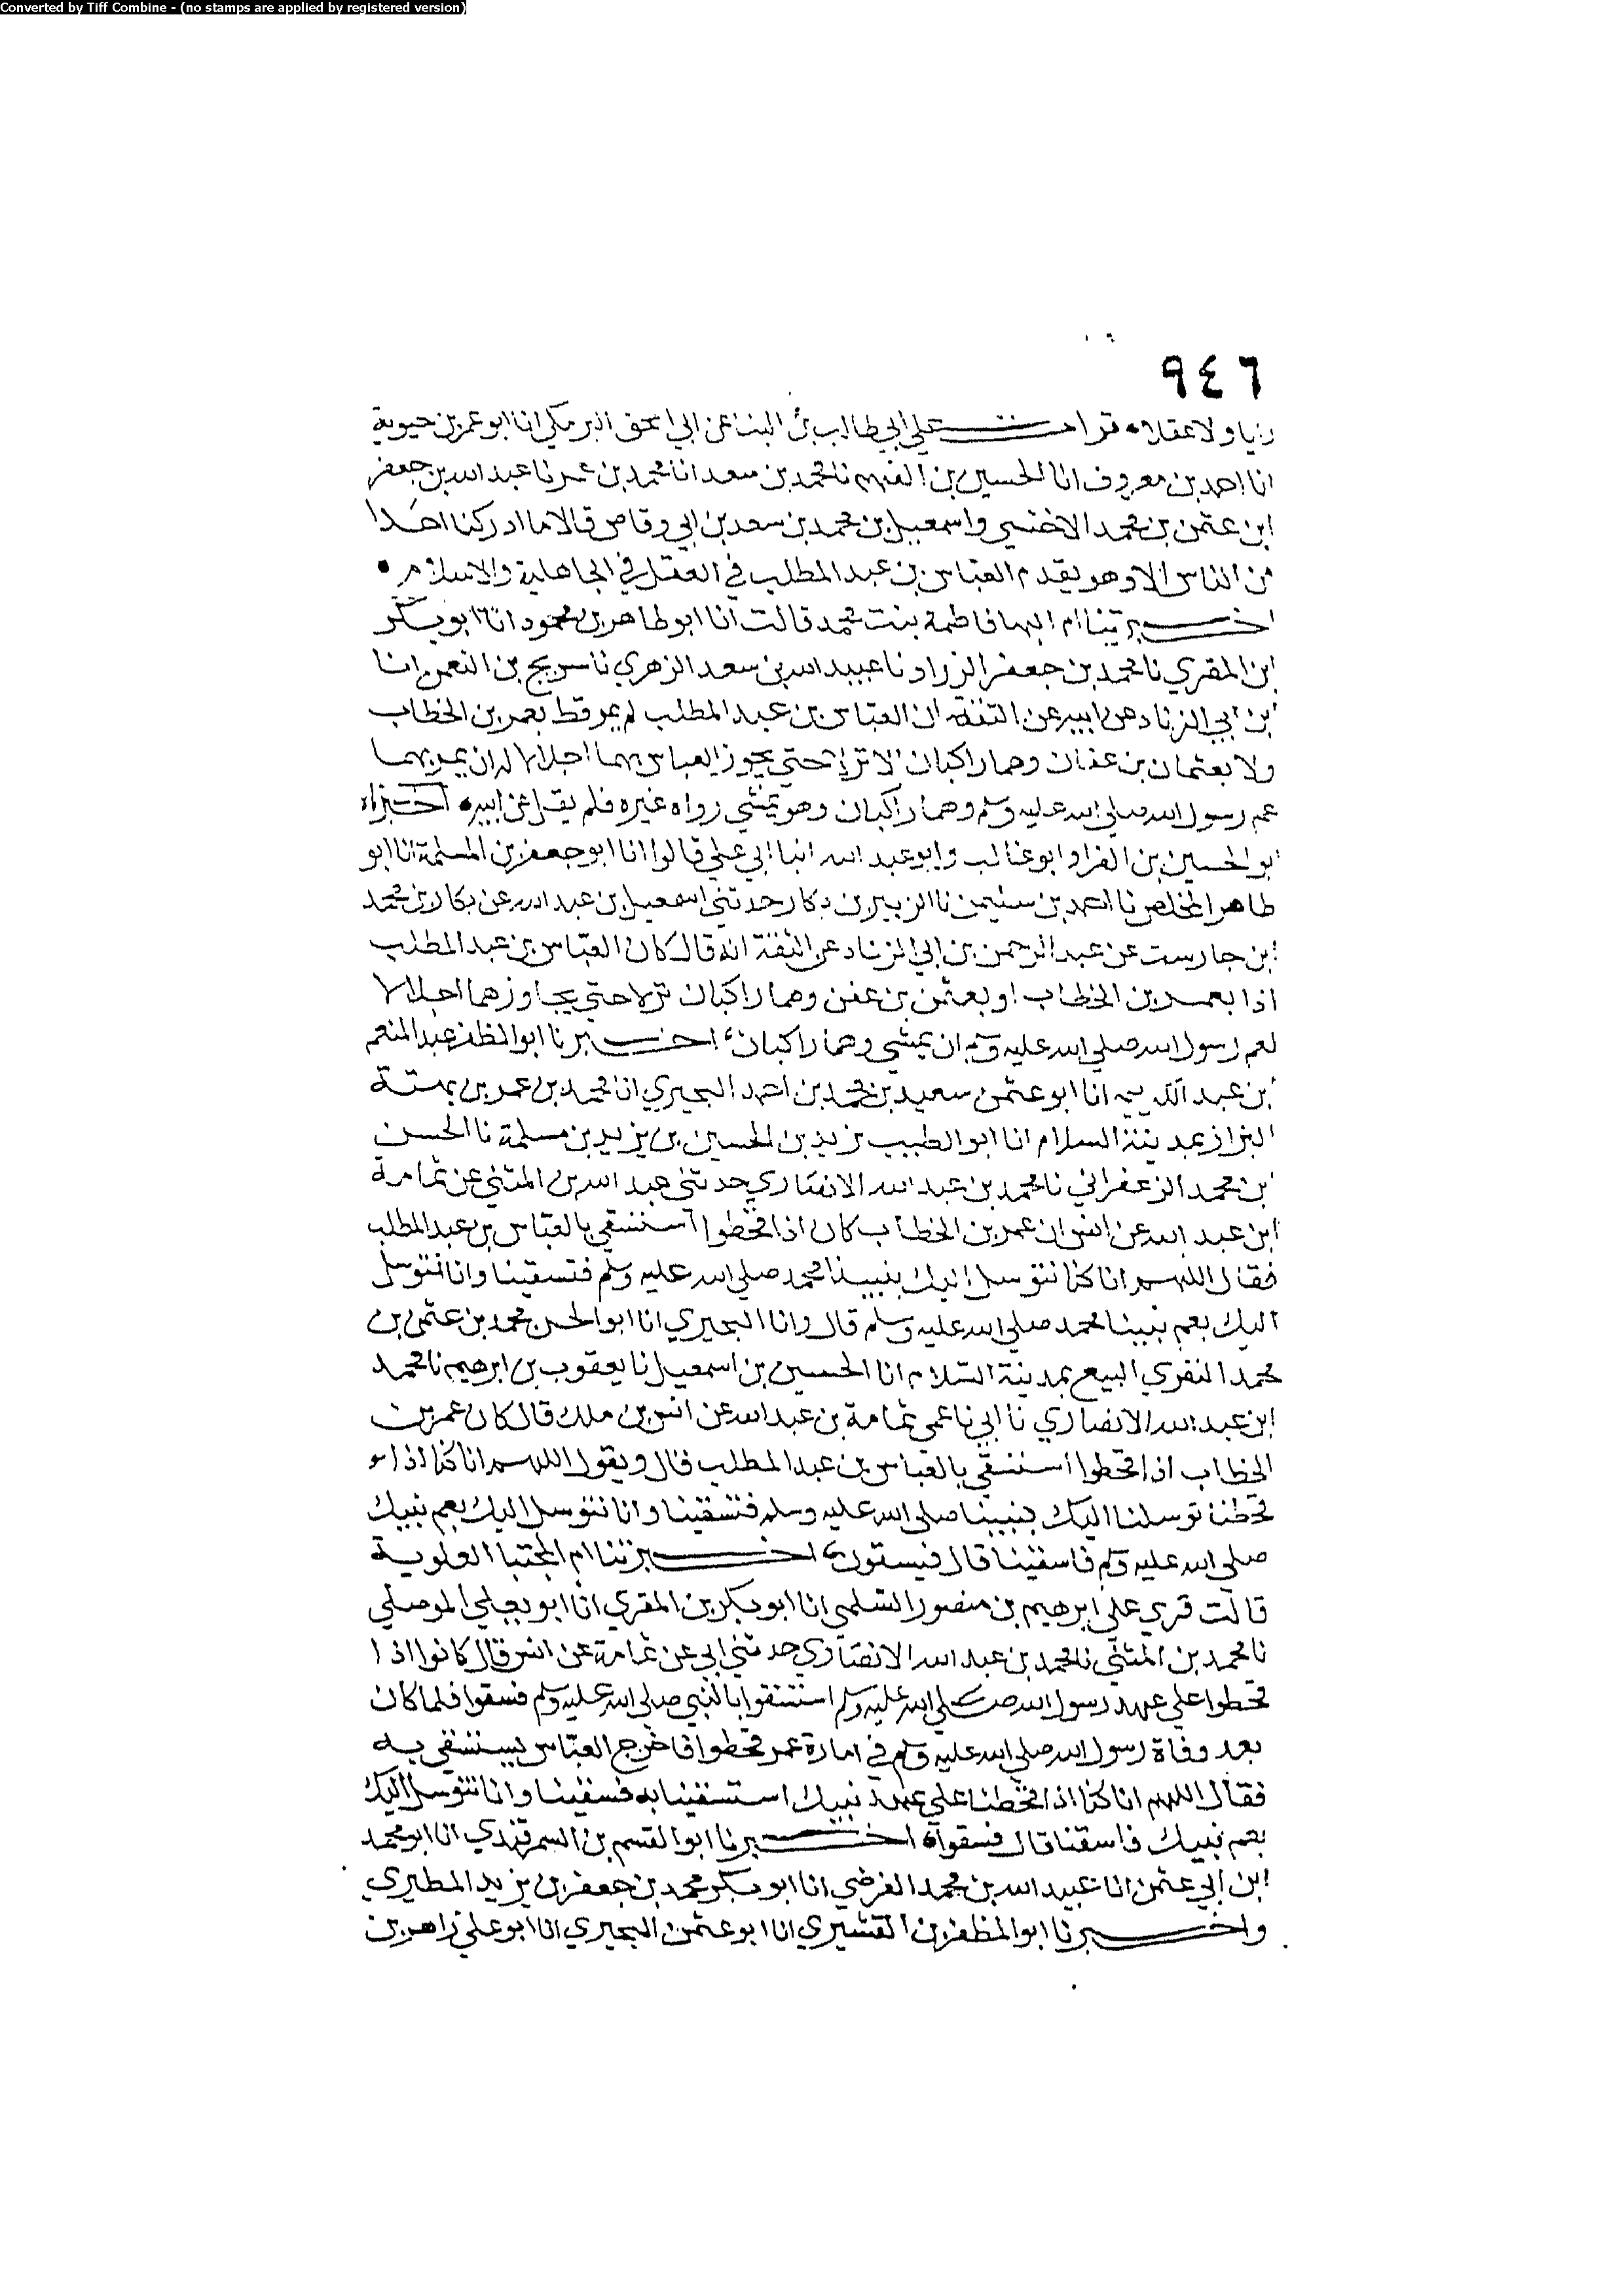 Converted by Tiff Combine - (no stamps are applied by registered version)
٩٤٦
رايا ولا عقلا • قرات على ابي طالب بن البنا عن ابي اسحق البرمكي انا ابو عمر بن حيوية
انا احمد بن معروف انا الحسين بن الفهم نا محمد بن سعد انا محمد بن عمر نا عبد الله بن جعفر
ابن عثمن بن محمد الاخنسي واسمعيل بن محمد بن سعد بن ابي وقاص قالا ما ادركنا احدا
من الناس الا وهو يقدم العباس بن عبد المطلب في العقل في الجاهلية والاسلام •
اخبرتنا ام البها فاطمة بنت محمد قالت انا ابو طاهر بن محمود انا ابو بكر
ابن المقري نا محمد بن جعفر الزراد نا عبيد الله بن سعد الزهري نا سريج بن النعمن انا
ابن ابي الزناد عن ابيه عن الثقة ان العباس بن عبد المطلب لم يمر قط بعمر بن الخطاب
ولا بعثمان بن عفان وهما راكبان الا نزلا حتى يجوز العباس بهما اجلالا له ان يمر بهما
عم رسول الله صلى الله عليه وسلم وهما راكبان وهو يمشي رواه غيره فلم يقل عن ابيه • اخبرناه
ابو الحسين بن الفرا وابو غالب وابو عبد الله ابنا ابي علي قالوا انا ابو جعفر بن المسلمة انا ابو
طاهر المخلص نا احمد بن سليمن نا الزبير بن بكار حدثني اسمعيل بن عبد الله عن بكار بن محمد
ابن جارست عن عبد الرحمن بن ابي الزناد عن الثقة انه قال كان العباس بن عبد المطلب
اذا بعمر بن الخطاب او بعثمن بن عفن وهما راكبان نزلا حتى يجاوزهما اجلالا
لعم رسول الله صلى الله عليه وسلم ان يمشي وهما راكبان، اخبرنا ابو المظفر عبد المنعم
ابن عبد الكريم انا ابو عثمن سعيد بن محمد بن احمد البحيري انا محمد بن عمر بن بهتة
البزاز بمدينة السلام انا ابو الطيب يزيد بن الحسين بن يزيد بن مسلمة نا الحسن
ابن محمد الزعفراني نا محمد بن عبد الله الانصاري حدثني عبد الله بن المثنى عن ثمامة
ابن عبد الله عن انس ان عمر بن الخطاب كان اذا قحطوا استسقى بالعباس بن عبد المطلب
فقال اللهم انا كنا نتوسل اليك بنبينا محمد صلى الله عليه وسلم فتسقينا وانا نتوسل
اليك بعم نبينا محمد صلى الله عليه وسلم قال وانا البحيري انا ابو الحسن محمد بن عثمن بن
محمد النفري البيع بمدينة السلام انا الحسين بن اسمعيل نا يعقوب بن ابرهيم نا محمد
ابن عبد الله الانصاري نا ابي نا عمي ثمامة بن عبد الله عن انس بن ملك قال كان عمر بن
الخطاب اذا قحطوا استسقى بالعباس بن عبد المطلب قال ويقول اللهم انا كنا اذا
قحطنا توسلنا اليك بنبينا صلى الله عليه وسلم فتسقينا وانا نتوسل اليك بعم نبيك
صلى الله عليه وسلم فاسقينا قال فيسقون، اخبرتنا ام المجتبا العلوية
قالت قري على ابرهيم بن منصور السلمي انا ابو بكر بن المقري انا ابو يعلي الموصلي
نا محمد بن المثنى نا محمد بن عبد الله الانصاري حدثني ابي عن ثمامة عن انس قال كانوا اذا
قحطوا على عهد رسول الله صلى الله عليه وسلم استسقوا بالنبي صلى الله عليه وسلم فسقوا فلما كان
بعد وفاة رسول الله صلى الله عليه وسلم في امارة عمر قحطوا فاخرج العباس يستسقي به
فقال اللهم انا كنا اذا قحطنا على عهد نبيك استسقينا به فسقينا وانا نتوسل اليك
بعم نبيك فاسقنا قال فسقوا • اخبرنا ابو القسم بن السمرقندي انا ابو محمد
ابن ابي عثمن انا عبيد الله بن محمد الفرضي انا ابو بكر محمد بن جعفر بن يزيد المطيري
واخبرنا ابو المظفر بن القشيري انا ابو عثمن البحيري انا ابو علي زاهر بن